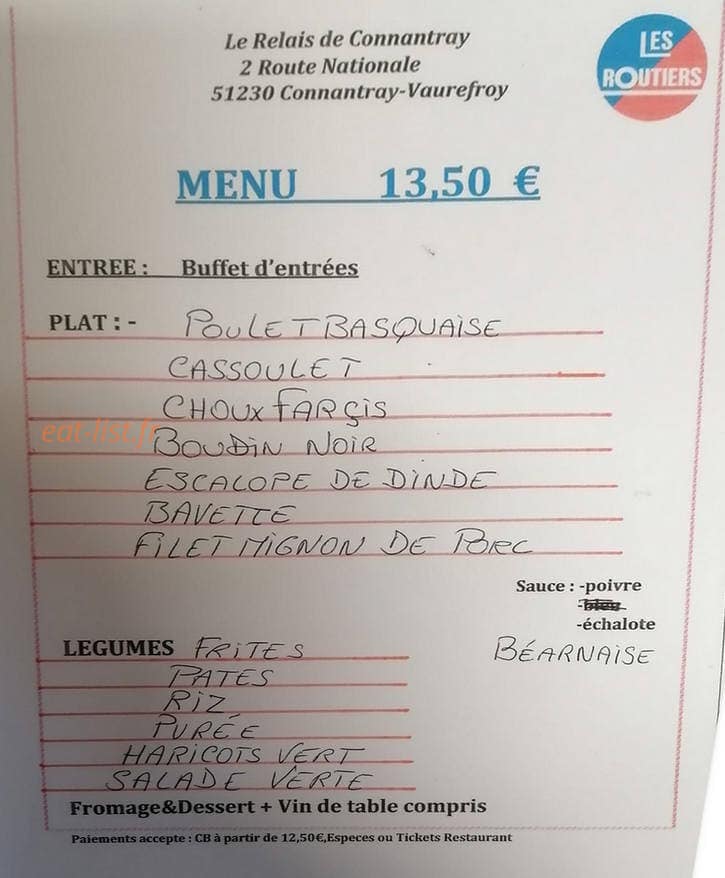 Le Relais de Connantray
2 Route Nationale
51230 Connantray-Vaurefroy
LES
ROUTIERS
MENU 13,50 €
ENTREE : Buffet d'entrées
PLAT : - POULET BASQUAISE
CASSOULET
CHOUX FARÇIS
eat-list.fr
BOUDIN NOIR
ESCALOPE DE DINDE
BAVETTE
FILET MIGNON DE PORC
Sauce : -poivre
-bleu
-échalote
BÉARNAISE
LEGUMES FRITES
PATES
RIZ
PURÉE
HARICOTS VERT
SALADE VERTE
Fromage&Dessert + Vin de table compris
Paiements accepte : CB à partir de 12,50€,Especes ou Tickets Restaurant